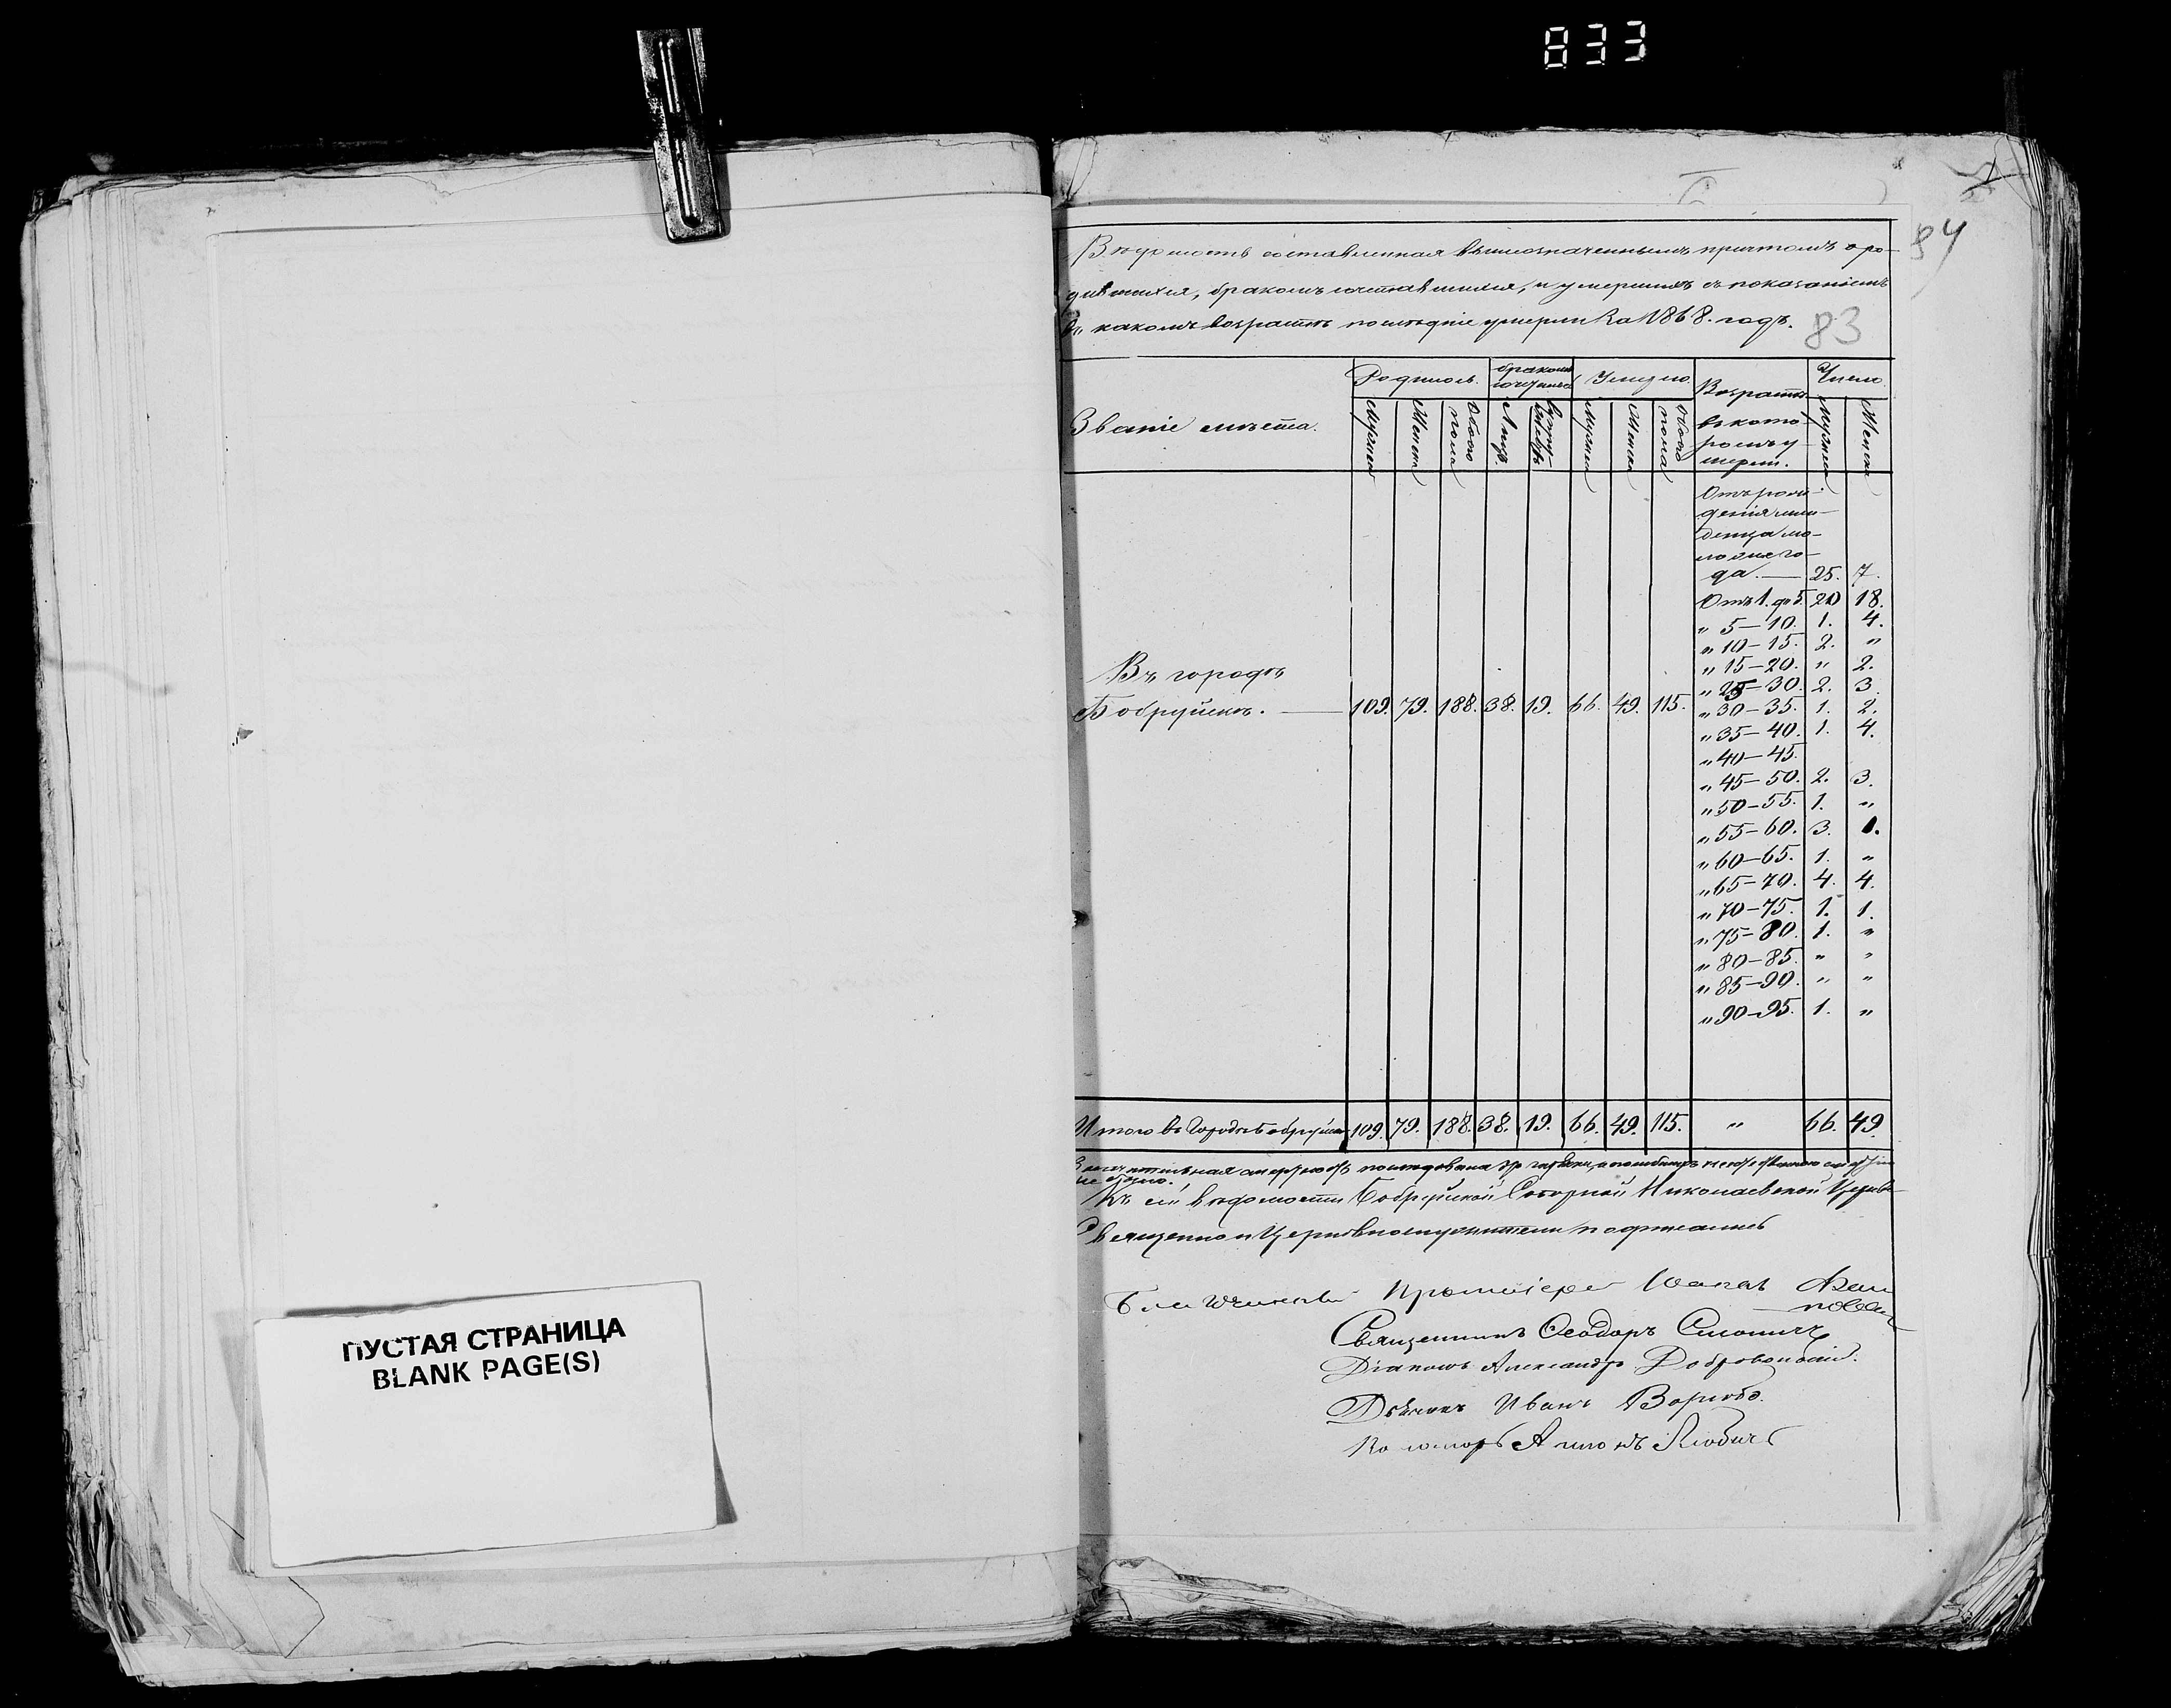 833
84
Вѣдомость составленная вышеозначеннымъ причтомъ о ро-
дившихся, бракомъ сочетавшихся, и умершихъ съ показаніемъ
въ какомъ возрастѣ послѣдніе умерли за 1868. годъ.
83
Званіе мѣста.
Родилось.
бракомъ
Умерло.
Возрастъ
въ кото-
ромъ у-
мерли.
Число.
Мужеска
Женска
Обоего пола
Лицъ.
Мужеска
Женска
Обоего пола
Мужеска
Женска
Отъ рож-
денія мла-
денца мо-
ложе го-
да. — 25. 7.
Отъ 1. до 5. 20 18.
" 5—10. 1. 4.
" 10—15. 2. "
" 15—20. " 2.
" 25—30. 2. 3.
" 30—35. 1. 2.
" 35—40. 1. 4.
" 40—45.
" 45—50. 2. 3.
" 50—55. 1. "
" 55—60. 3. 1.
" 60—65. 1. "
" 65—70. 4. 4.
" 70—75. 1. 1.
" 75—80. 1. "
" 80—85. " "
" 85—90. " "
" 90—95. 1. "
Въ городѣ
Бобруйскѣ. — 109. 79. 188. 38. 19. 66. 49. 115.
Итого въ Городѣ Бобруйскѣ 109. 79. 188. 38. 19. 66. 49. 115. " 66. 49.
не было.
Къ сей вѣдомости Бобруйской Соборной Николаевской Церкви
Священно и Церковнослужители подписались
Благочинный Протоіерей Іоаннъ
Священникъ Ѳеодоръ
Діаконъ Александръ Добровольскій.
Дьячекъ Иванъ
Пономарь
ПУСТАЯ СТРАНИЦА
BLANK PAGE(S)